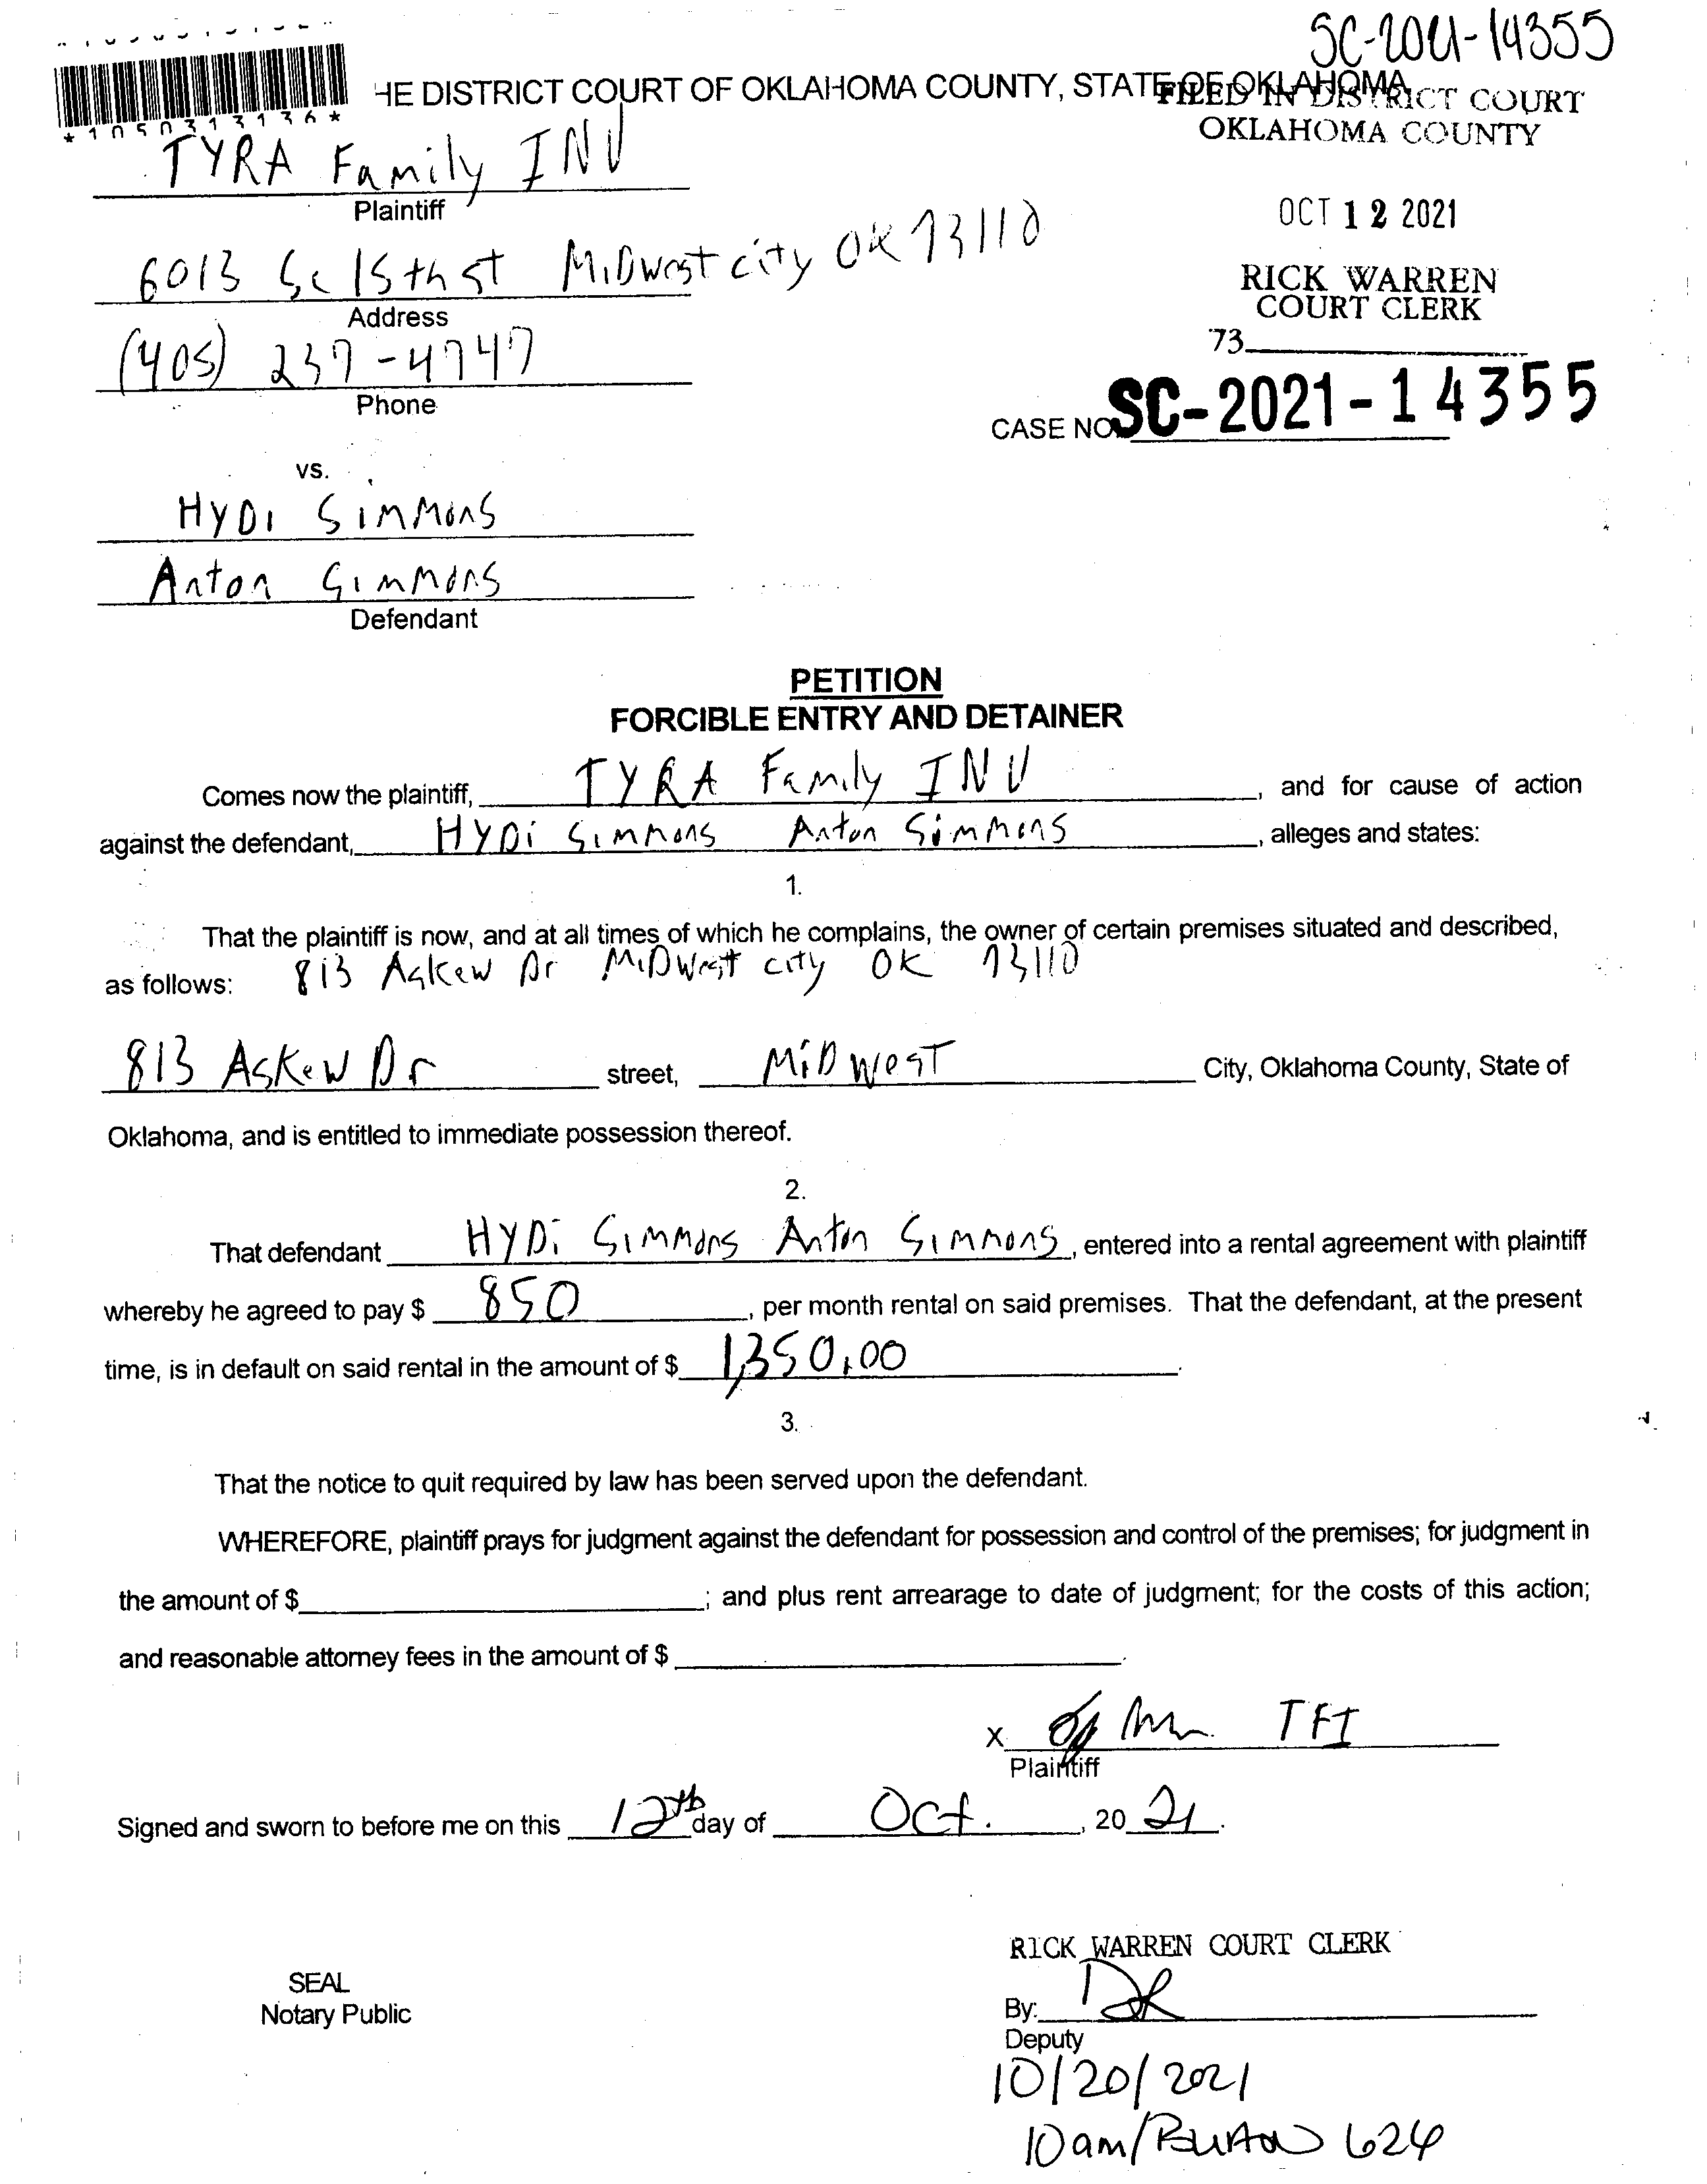 SC-2021-14355
HE DISTRICT COURT OF OKLAHOMA COUNTY, STATE OF OKLAHOMA
FILED IN DISTRICT COURT
OKLAHOMA COUNTY
*1050313136*
TYRA Family INV
Plaintiff
OCT 12 2021
6013 Se 15th st MiDwest city OK 73110
Address
RICK WARREN
COURT CLERK
(405) 237-4747
Phone
73
CASE NO. SC-2021-14355
vs.
HYDi SimmonS
Anton SimmonS
Defendant
PETITION
FORCIBLE ENTRY AND DETAINER
Comes now the plaintiff, TYRA Family INV, and for cause of action
against the defendant, HYDi Simmons Anton Simmons, alleges and states:
1.
That the plaintiff is now, and at all times of which he complains, the owner of certain premises situated and described,
as follows: 813 Askew Dr MiDwest city OK 73110
813 Askew Dr street, MiDwesT City, Oklahoma County, State of
Oklahoma, and is entitled to immediate possession thereof.
2.
That defendant HYDi Simmons Anton Simmons, entered into a rental agreement with plaintiff
whereby he agreed to pay $ 850, per month rental on said premises. That the defendant, at the present
time, is in default on said rental in the amount of $ 1,350.00.
3.
That the notice to quit required by law has been served upon the defendant.
WHEREFORE, plaintiff prays for judgment against the defendant for possession and control of the premises; for judgment in
the amount of $; and plus rent arrearage to date of judgment; for the costs of this action;
and reasonable attorney fees in the amount of $.
X TFI
Plaintiff
Signed and sworn to before me on this 12th day of Oct., 20 21.
RICK WARREN COURT CLERK
SEAL
Notary Public
By:
Deputy
10/20/2021
10am/ 624